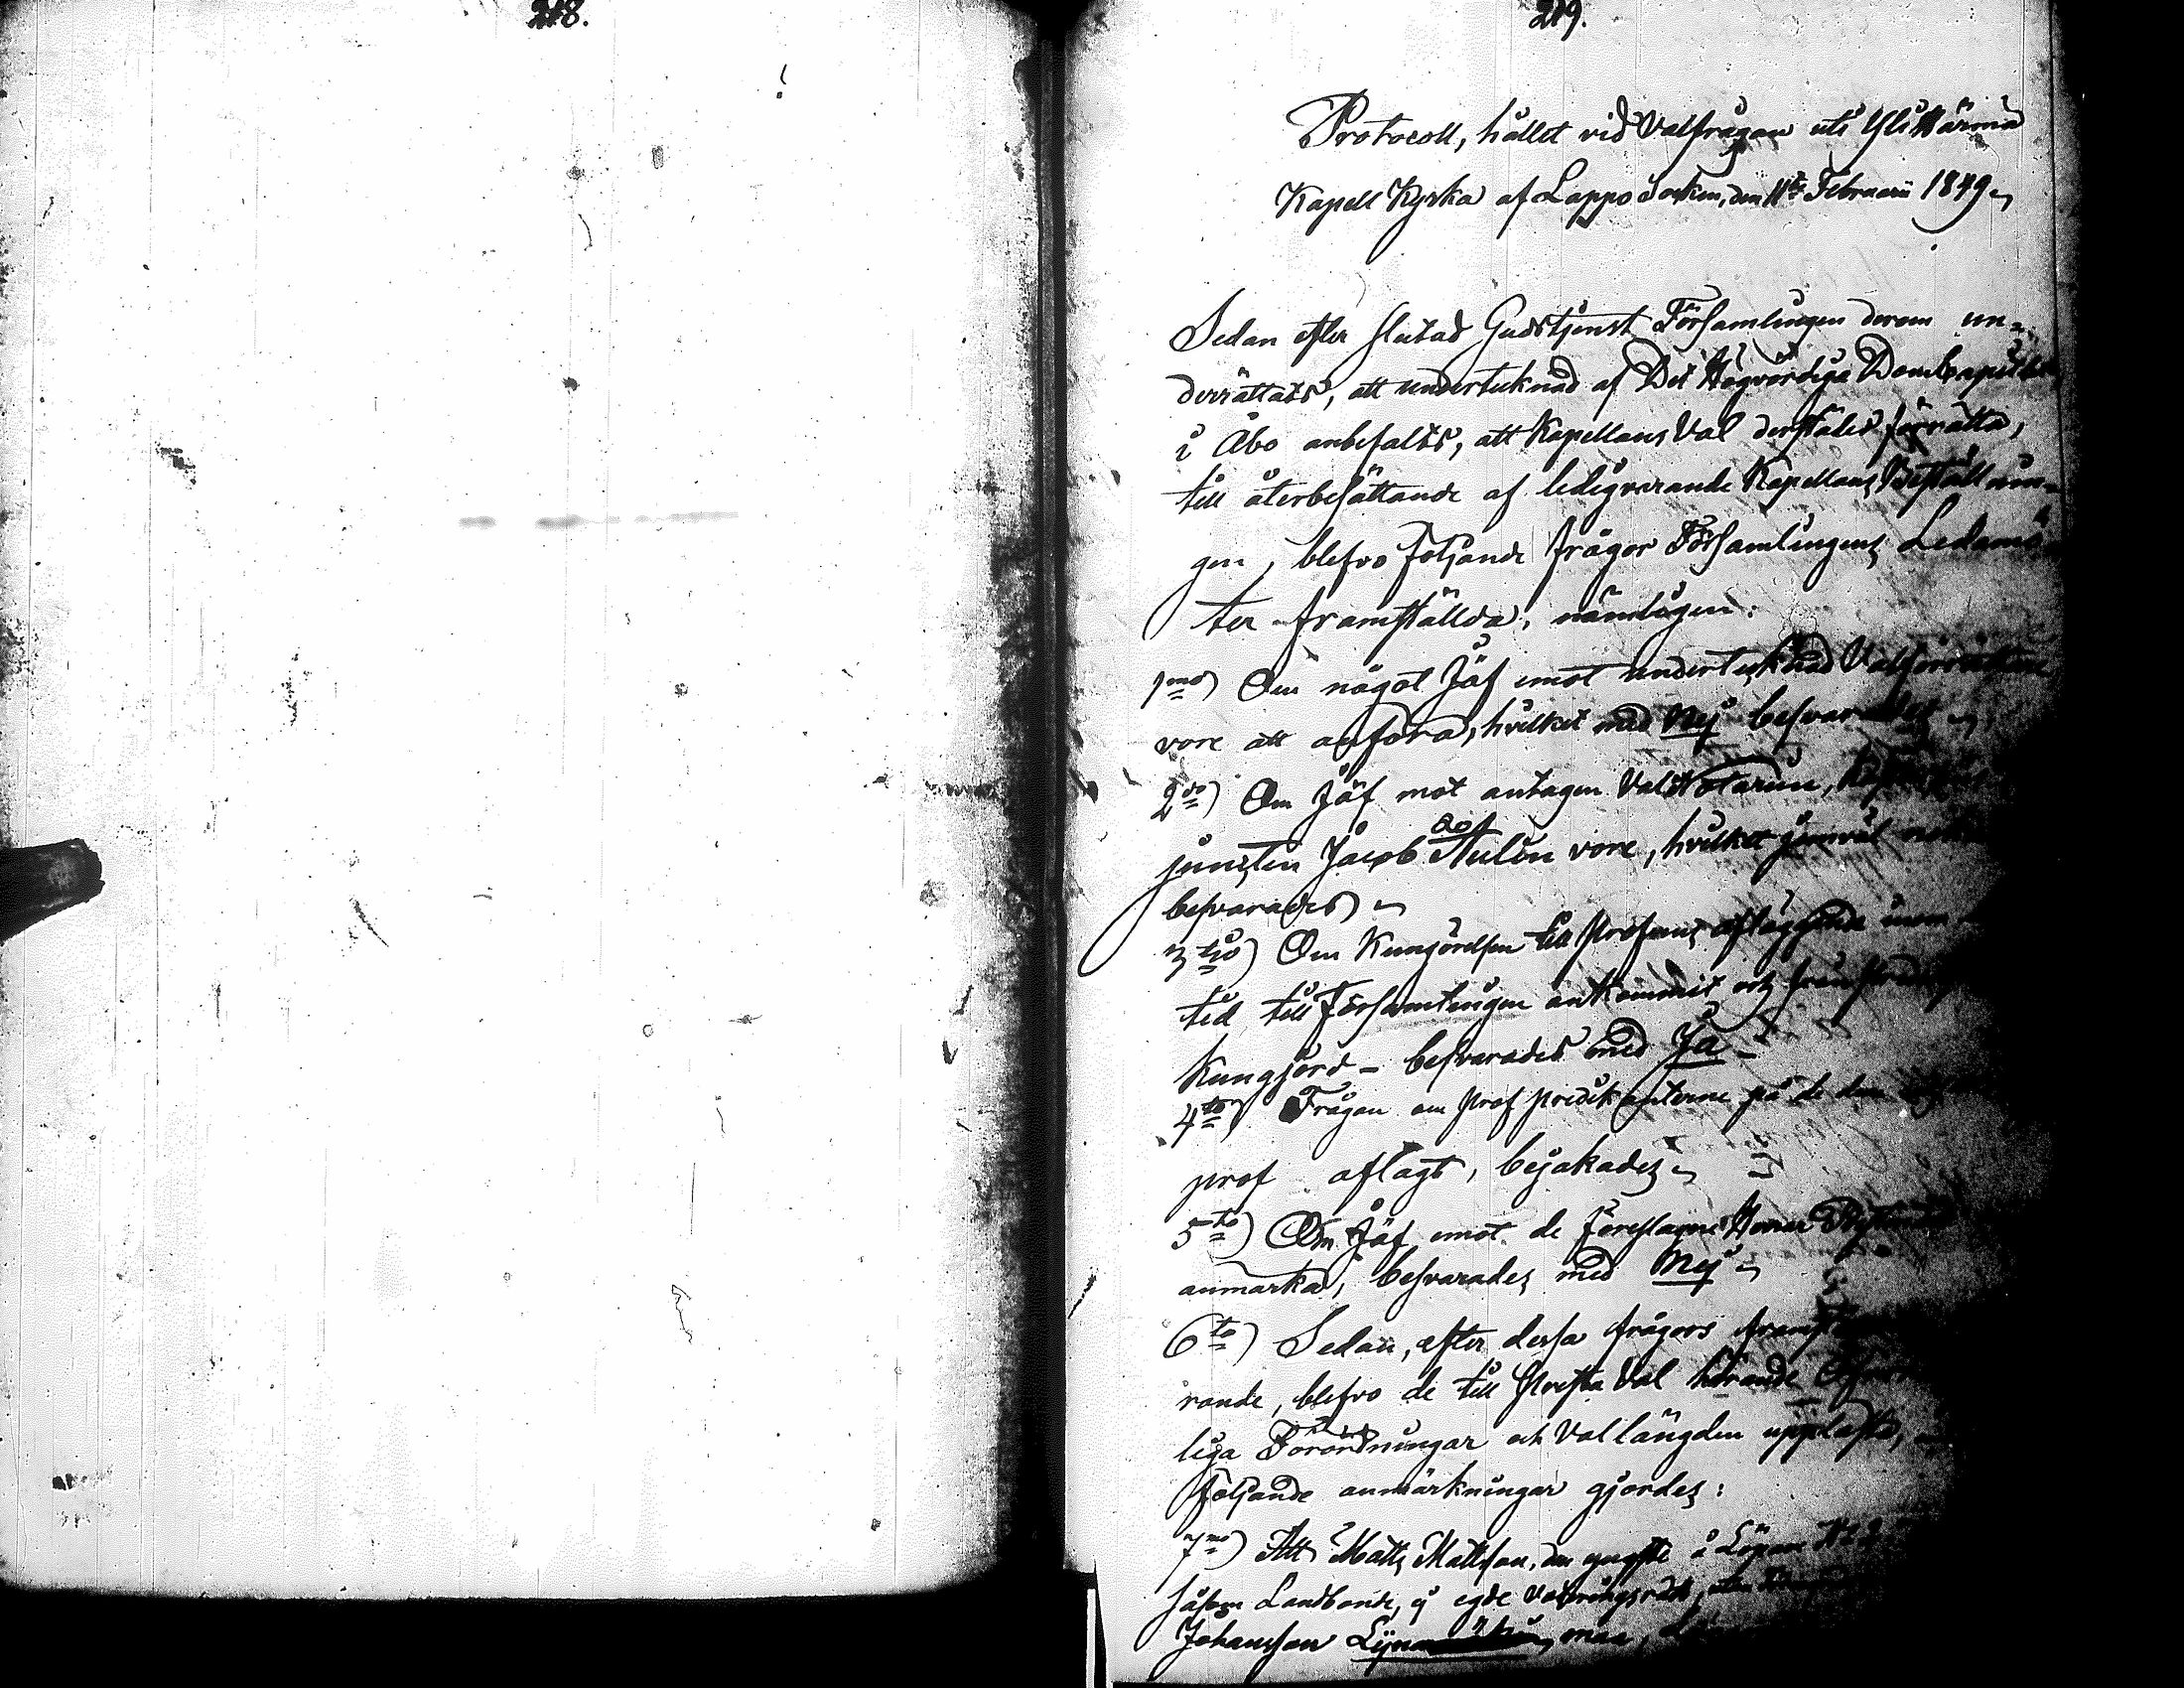 218.
219.
Protocoll, hållet vid Valfrågan uti Yli Härmä
Kapell Kyrka af Lappo Socken, den 11te Februarii 1849
Sedan efter slutad Gudstjenst Församlingen derom un-
derrättats, att undertecknad af Det Högvördige DomCapitlet
i Åbo anbefalts, att Kapellans Val derstädes förrätta,
till återbesättande af ledigvarande Kapellans Beställnin-
gen, blefvo följande frågor Församlingens Ledamö-
ter framställda, nämligen:
1mo) Om något Jäf emot undertecknad Valförrättare
vore att anföra, hvilket med Nej besvarades
2do) Om Jäf mot antagen ValNotarien,
juncten Jacob Aulin vore, hvilket jemväl
besvarades
3tio) Om Kungörelsen till Profvens afläggande inom
tid till Församlingen ankommit och
Kungjord - besvarades med Ja
4to) Frågan om profpredikanterne på de dem
prof aflagt, bejakades
5to) Om Jäf emot de föreslagne Herrar
anmärka, besvarades med Nej
6to) Sedan, efter dessa frågors
rande, blefvo de till Presta Val hörande
liga Förordningar och Vallängden uppläste,
följande anmärkningar gjordes:
7mo) Att Matts Mattsson, den yngste å
såsom Landbonde, ej egde
Johansson